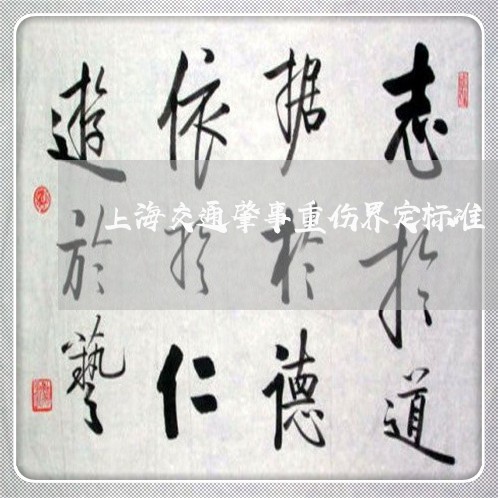 志於道
据於德
依於仁
遊於藝
上海交通肇事重伤界定标准